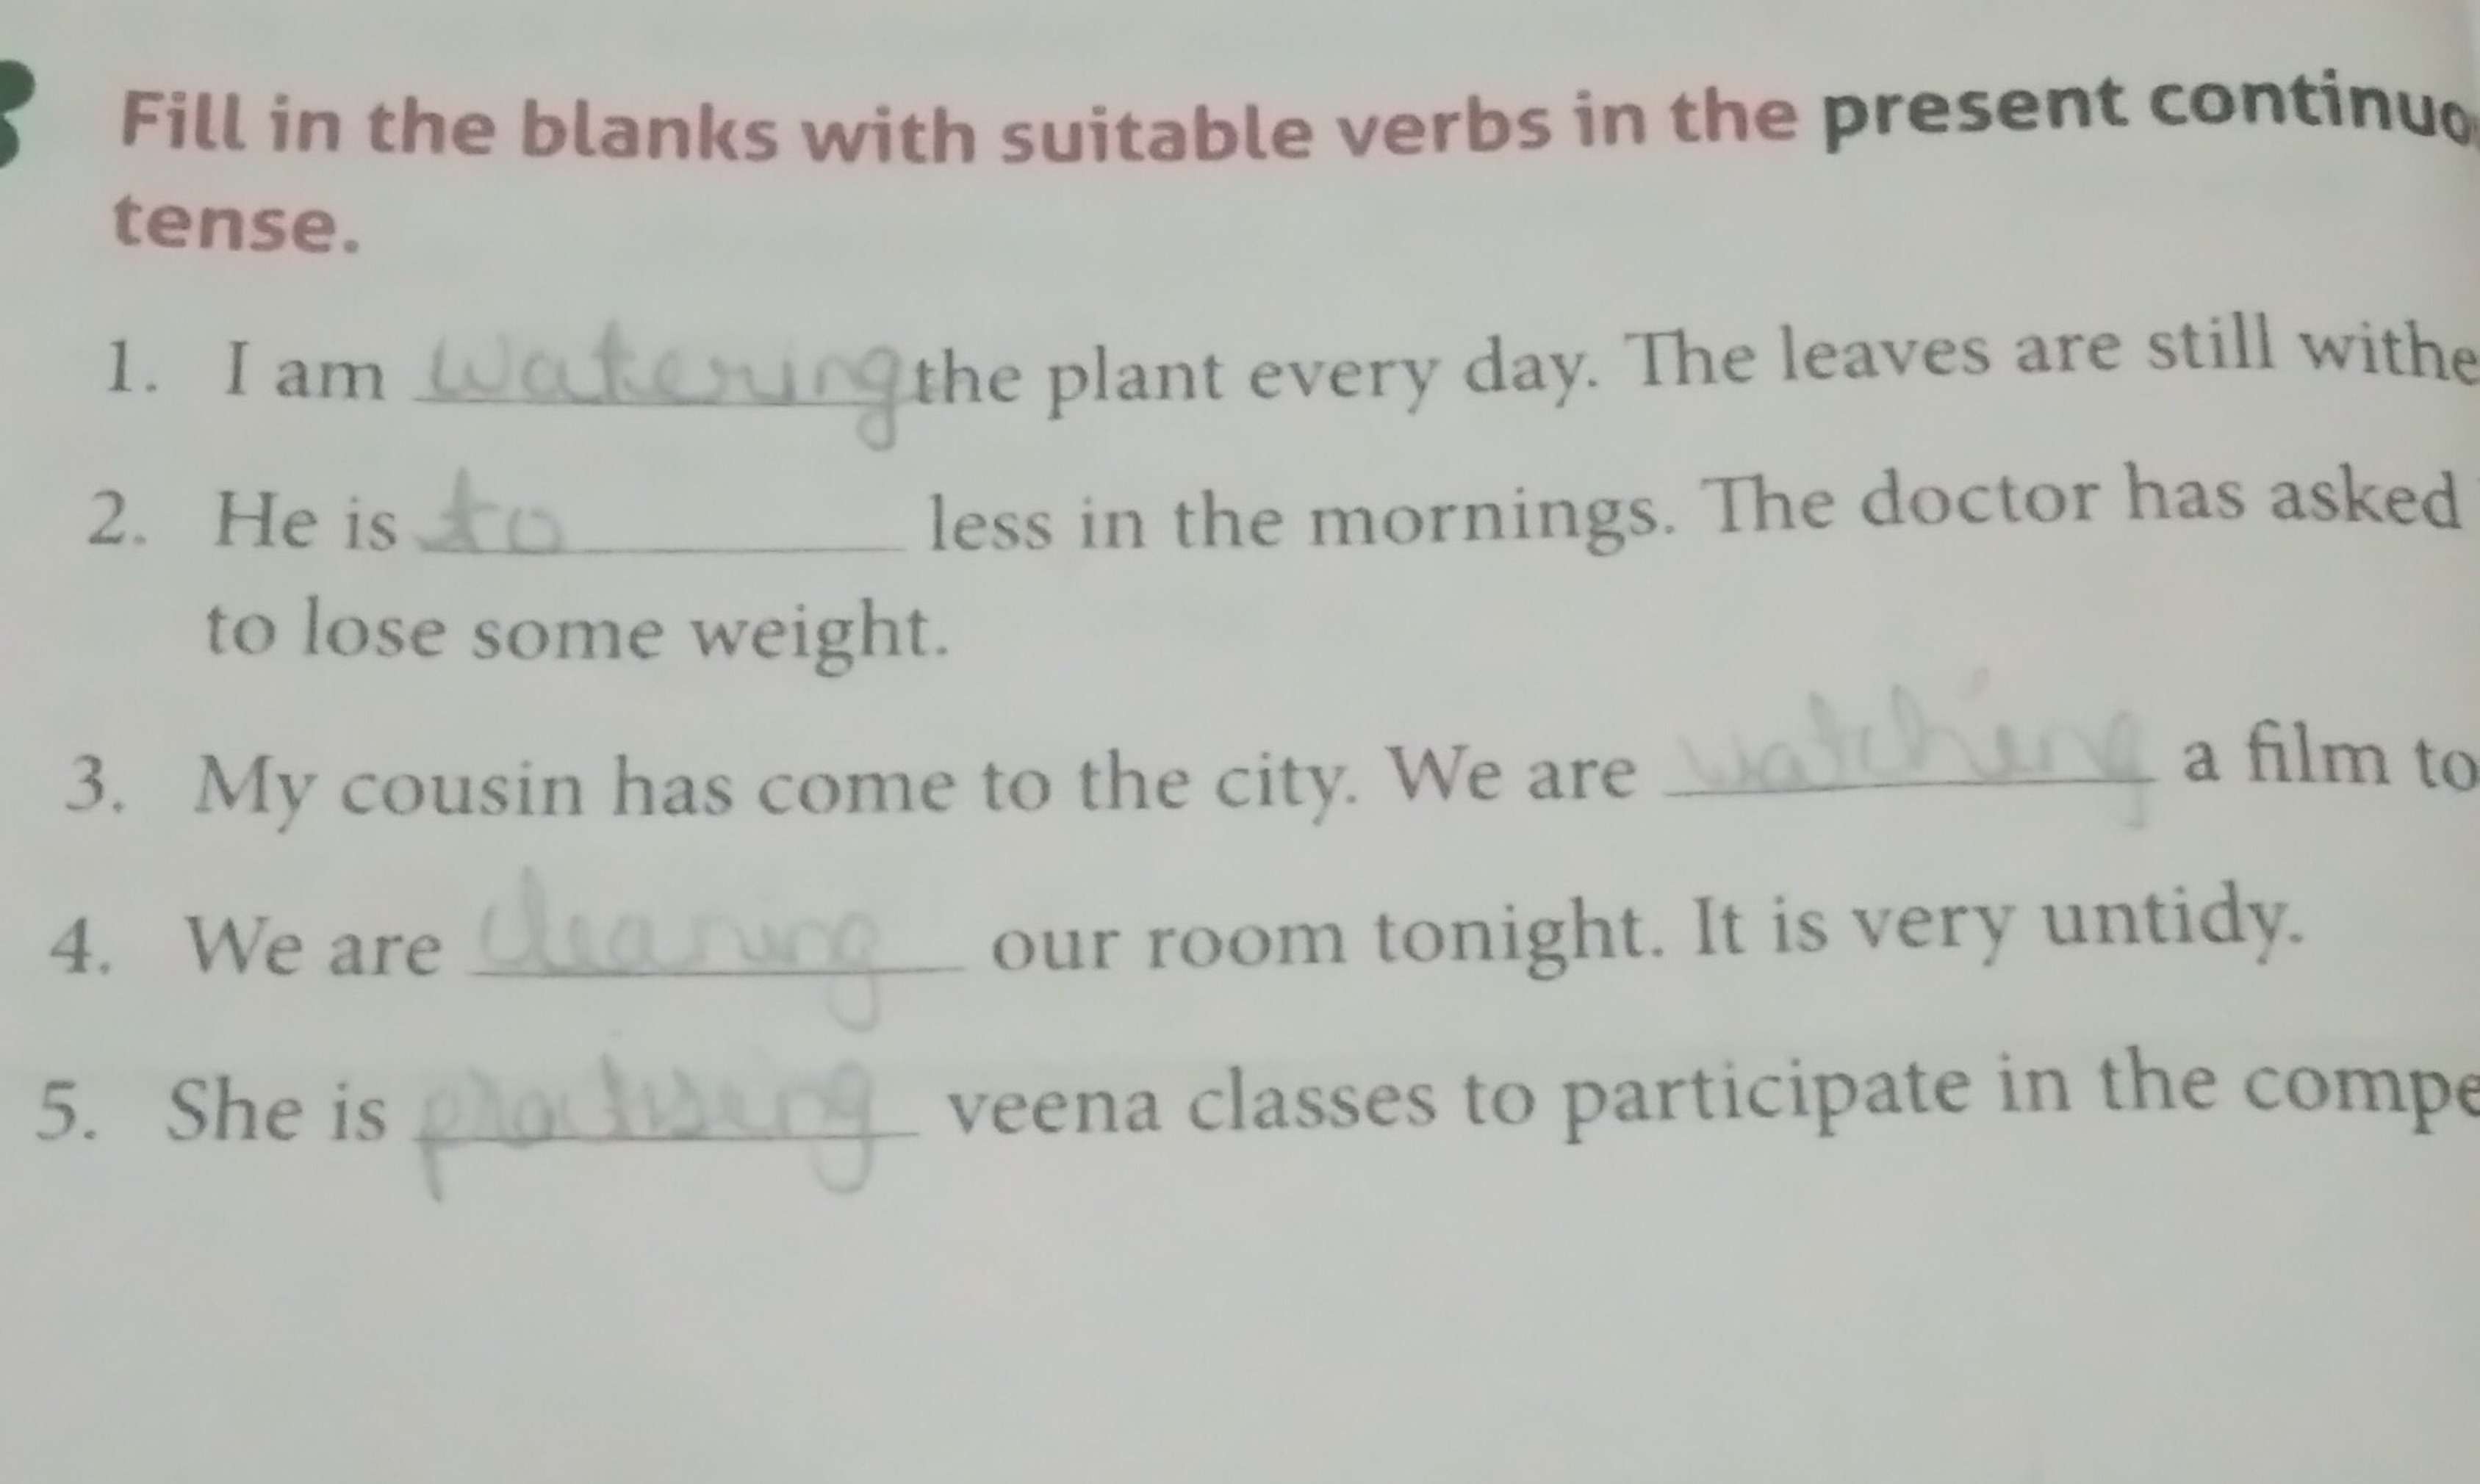 Fill in the blanks with suitable verbs in the present continuo
tense.
1. I am watering the plant every day. The leaves are still withe
2. He is to less in the mornings. The doctor has asked
to lose some weight.
3. My cousin has come to the city. We are watching a film to
4. We are cleaning our room tonight. It is very untidy.
5. She is veena classes to participate in the compe